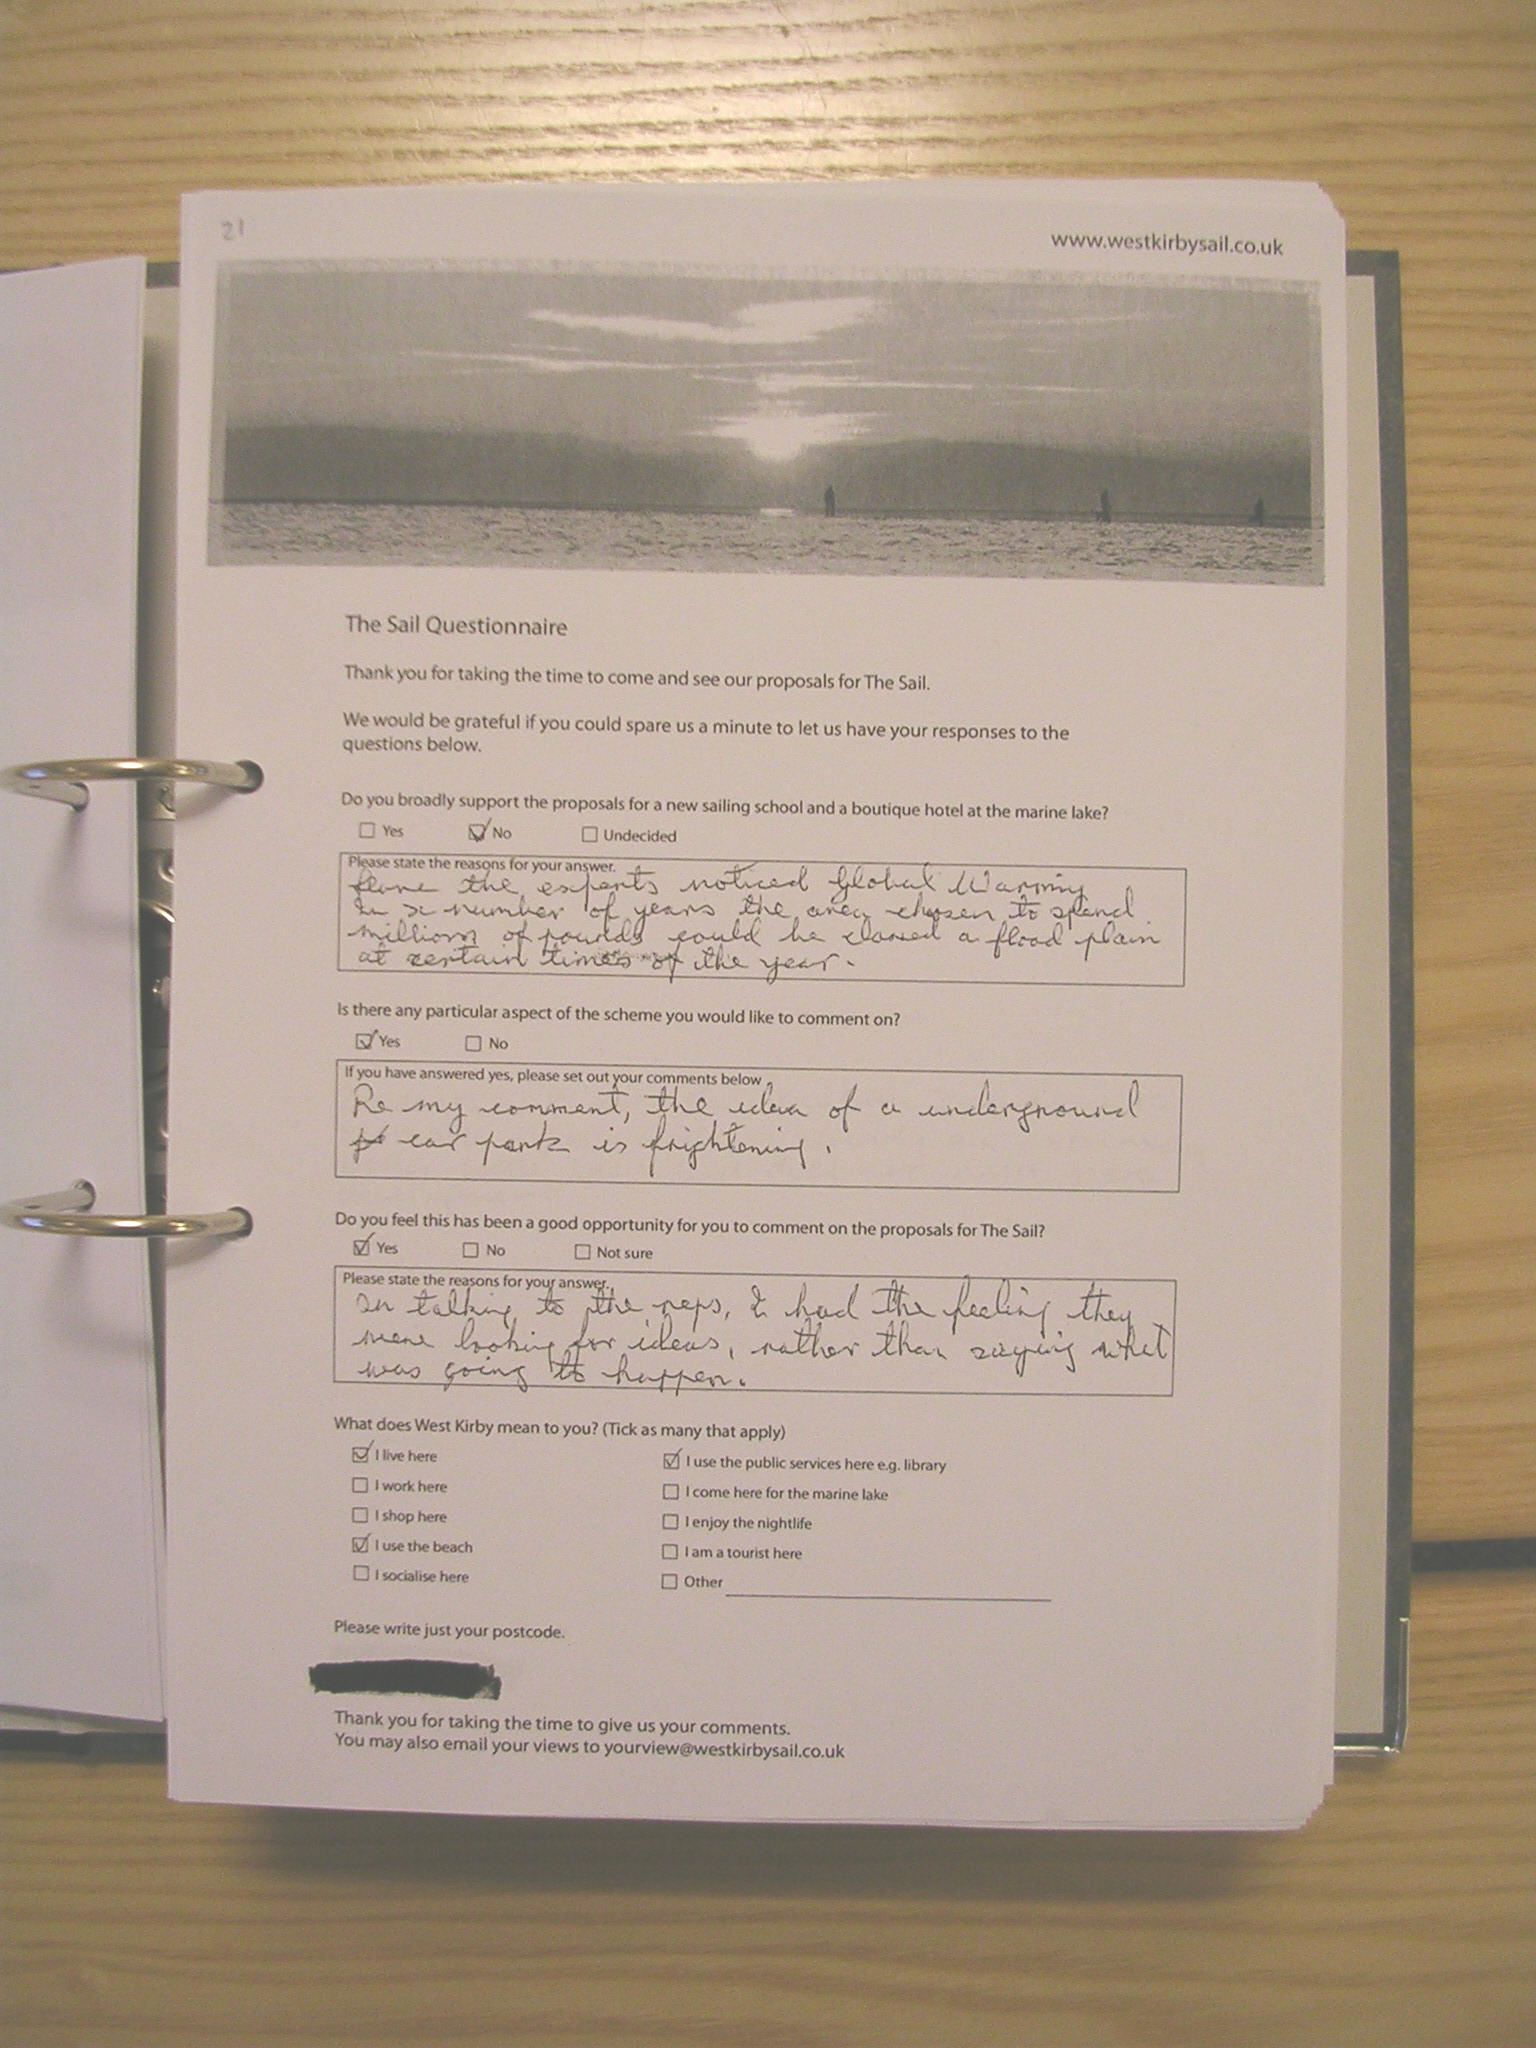 21
www.westkirbysail.co.uk
The Sail Questionnaire
Thank you for taking the time to come and see our proposals for The Sail.
We would be grateful if you could spare us a minute to let us have your responses to the
questions below.
Do you broadly support the proposals for a new sailing school and a boutique hotel at the marine lake?
Yes No Undecided
Please state the reasons for your answer.
Have the experts noticed Global Warming
In x number of years the area chosen to spend
millions of pounds could be classed a flood plain
at certain times of the year.
Is there any particular aspect of the scheme you would like to comment on?
Yes No
If you have answered yes, please set out your comments below
Re my comment, the idea of a underground
car park is frightening.
Do you feel this has been a good opportunity for you to comment on the proposals for The Sail?
Yes No Not sure
Please state the reasons for your answer.
In talking to the reps, I had the feeling they
were looking for ideas, rather than saying what
was going to happen.
What does West Kirby mean to you? (Tick as many that apply)
I live here I use the public services here e.g. library
I work here I come here for the marine lake
I shop here I enjoy the nightlife
I use the beach I am a tourist here
I socialise here Other
Please write just your postcode.
Thank you for taking the time to give us your comments.
You may also email your views to yourview@westkirbysail.co.uk